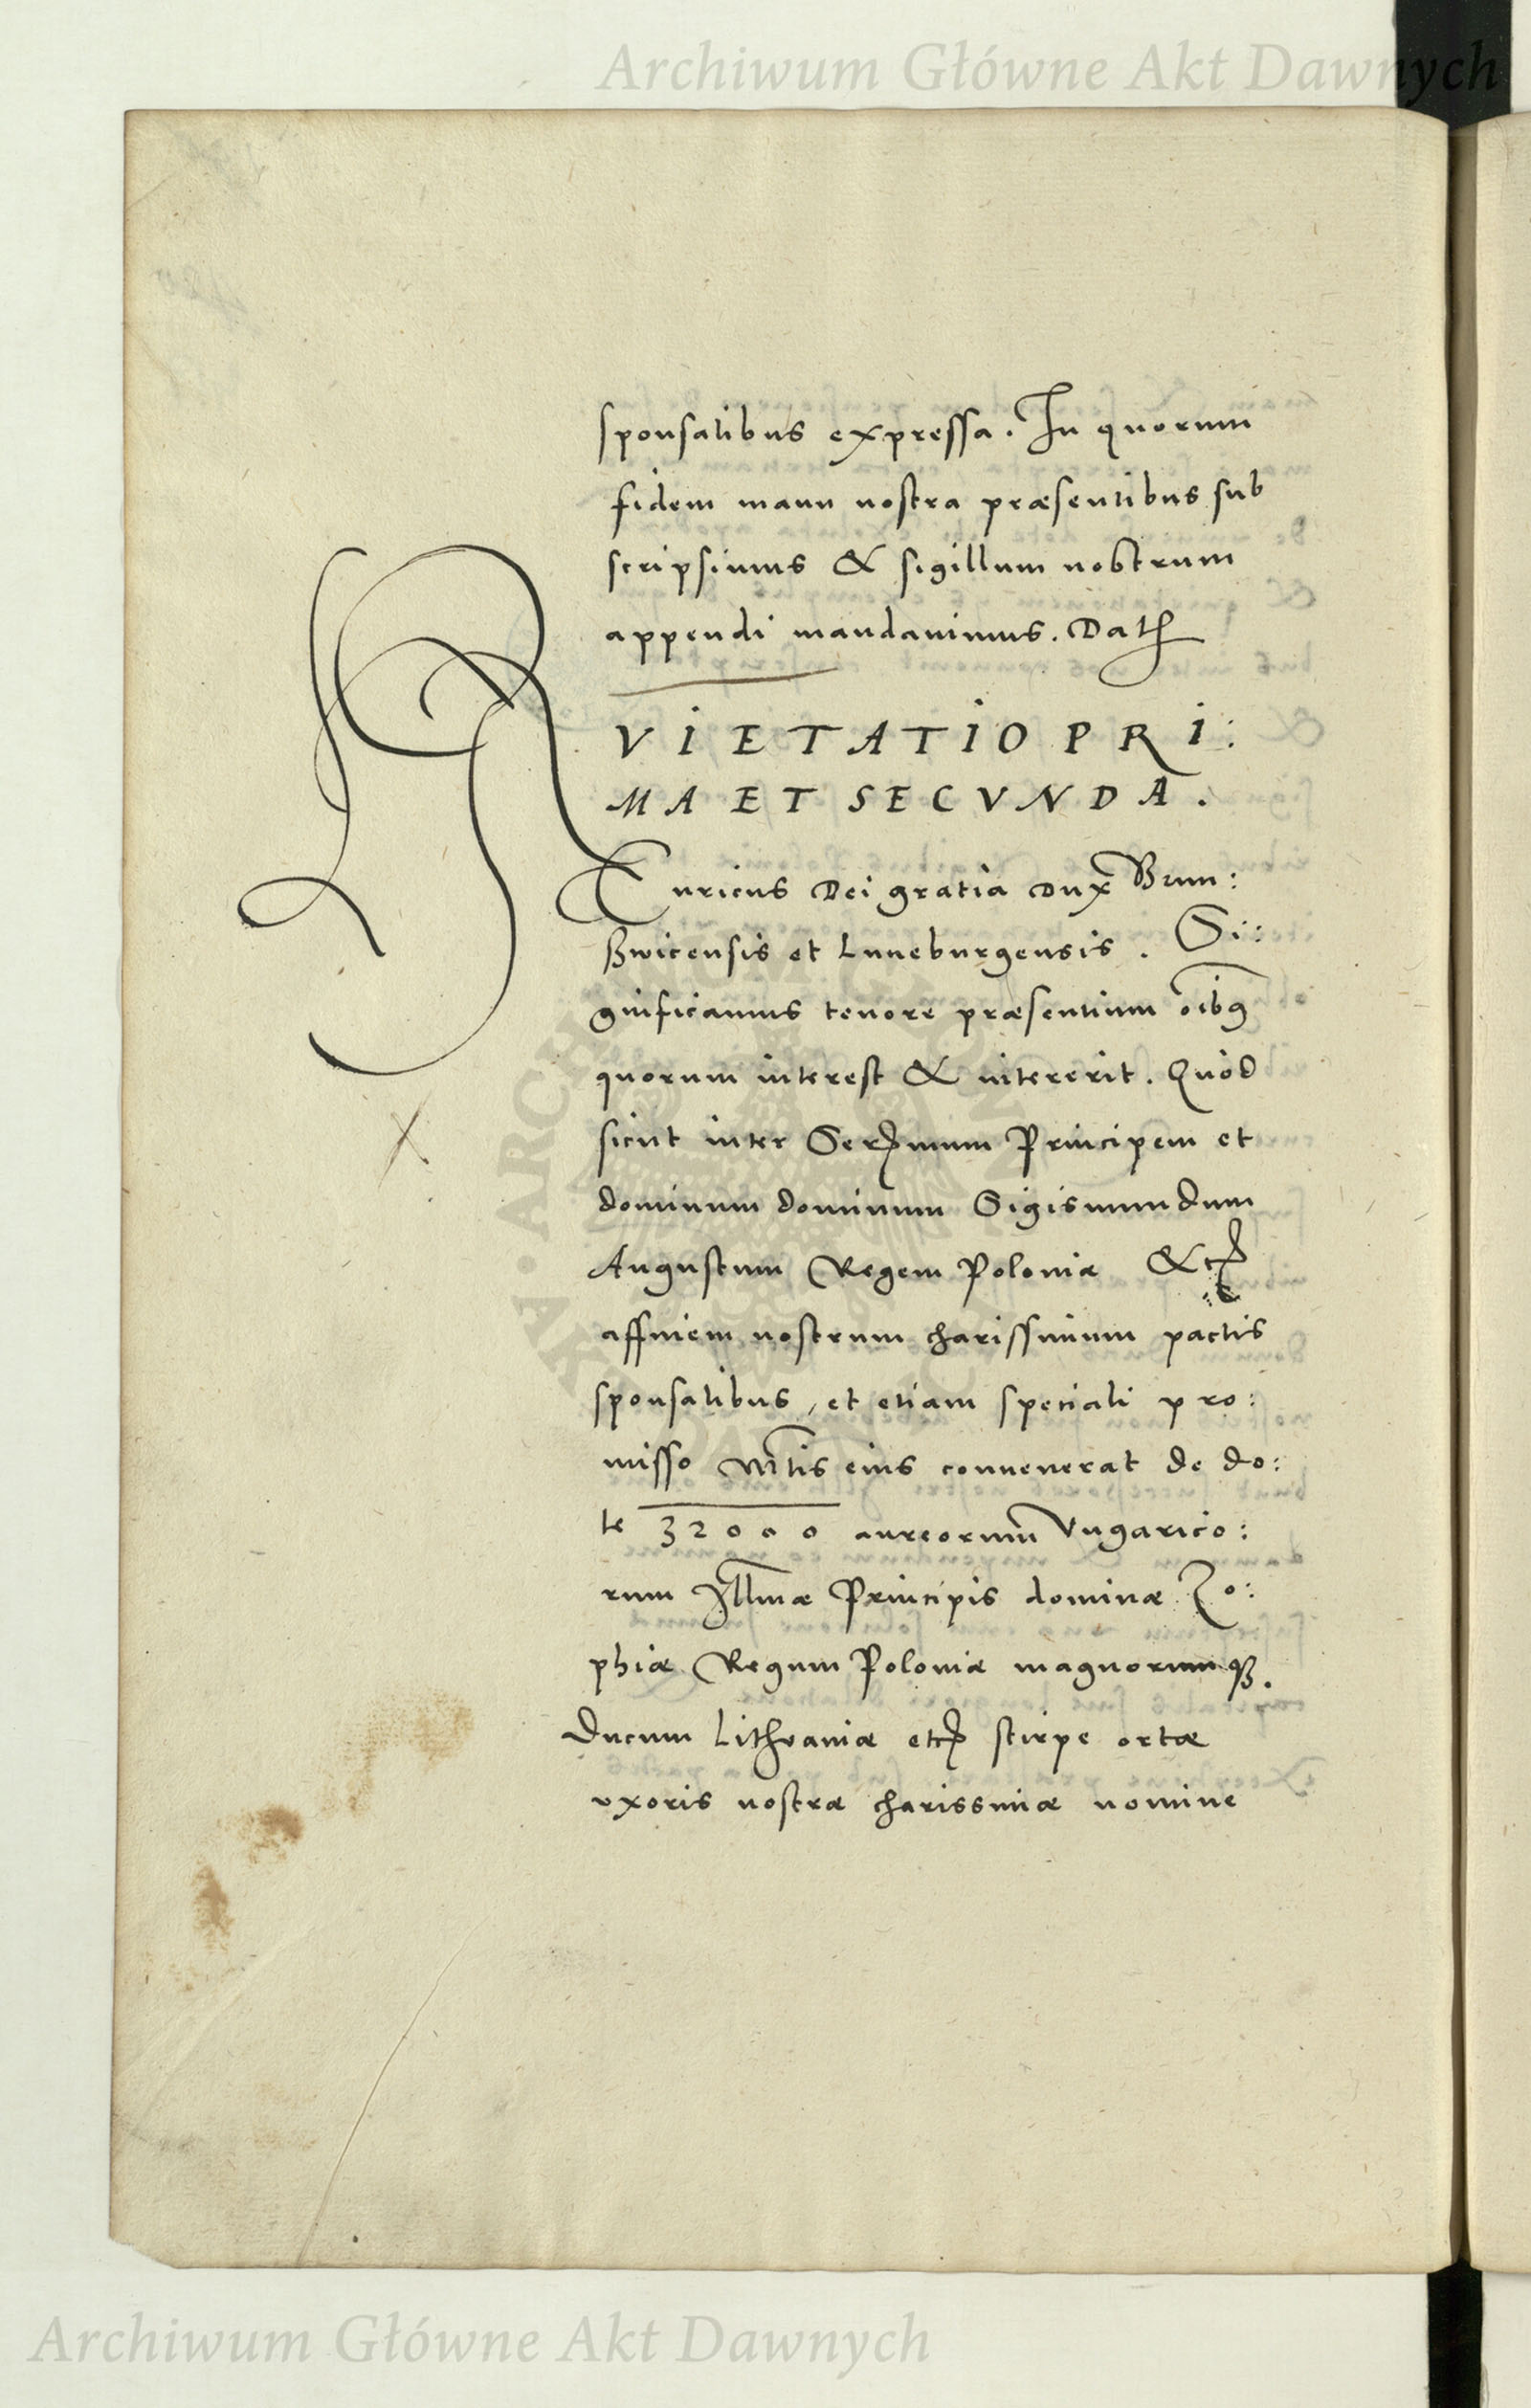 Archiwum Główne Akt Dawnych
sponsalibus expressa. In quorum
fidem manu nostra præsentibus sub
scripsimus & sigillum nostrum
appendi mandavimus. Dat
QVIETATIO PRI:
MA ET SECVNDA.
Enricus Dei gratia Dux Brun:
swicensis et Luneburgensis. Si:
gnificamus tenore præsentium oibus
quorum interest & intererit. Quod
sicut inter Sermum Principem et
dominum dominum Sigismundum
Augustum Regem Poloniæ &c
affinem nostrum charissimum pactis
sponsalibus, et etiam speciali pro:
misso Mtis eius convenerat de do:
te 32000 aureorum Vngarico:
rum Illmæ Principis dominæ Zo:
phiæ Regum Poloniæ magnorumq3.
Ducum Lithvaniæ etc stirpe ortæ
vxoris nostræ charissimæ nomine
Archiwum Główne Akt Dawnych